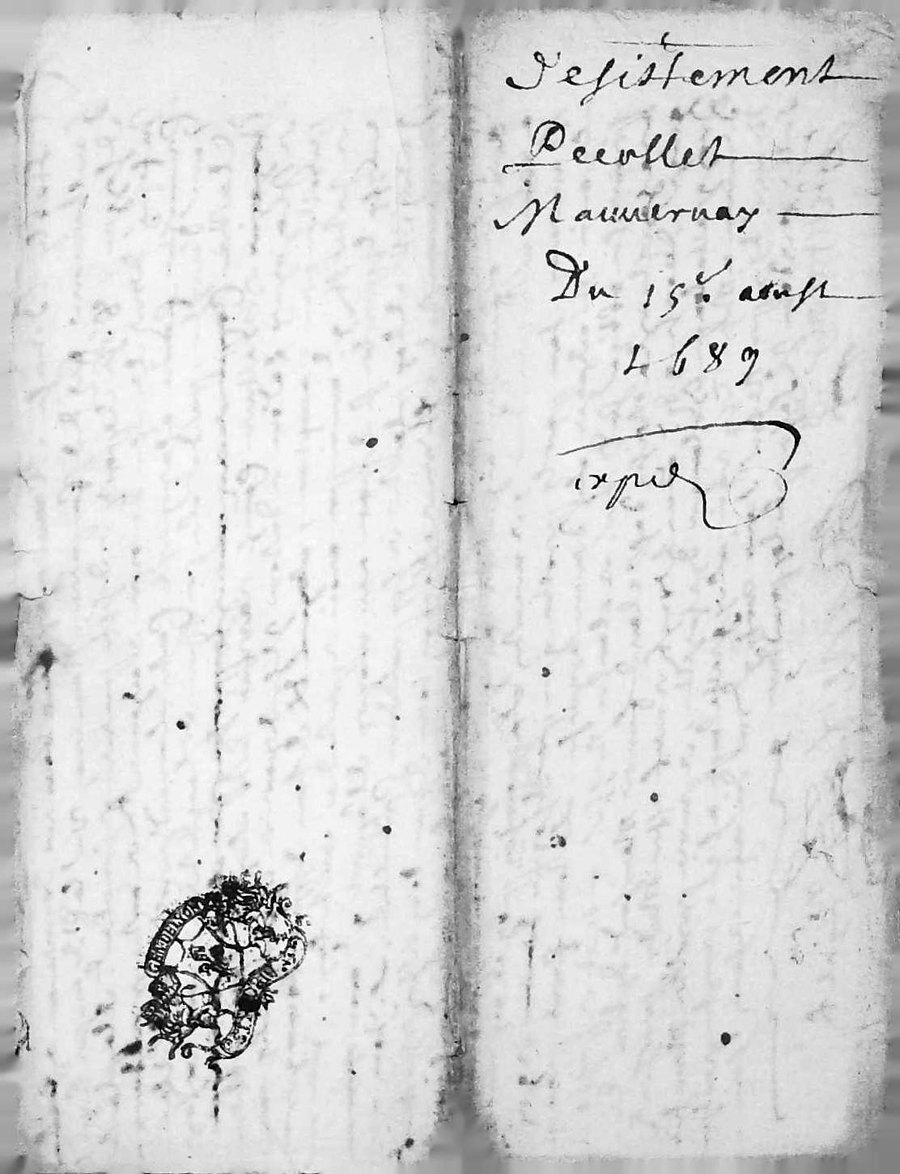 Desistement
Pecollet
Mauvernay
Du 15e. aoust
1689
expié